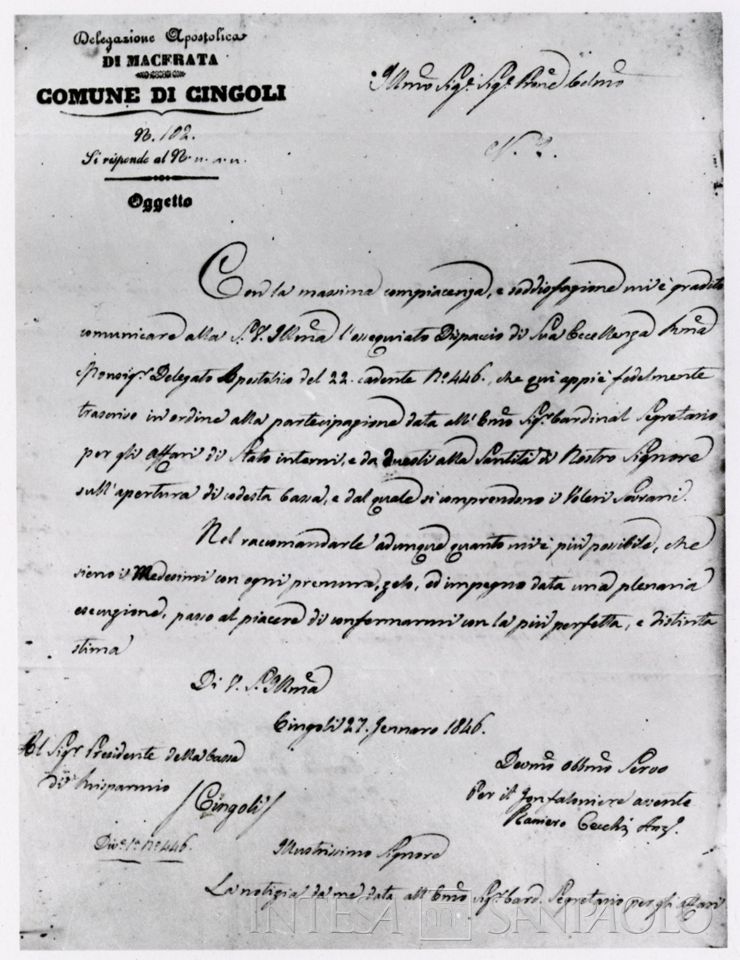 Delegazione Apostolica
DI MACERATA
COMUNE DI CINGOLI
N. 102.
Si risponde al N.
Oggetto
Illmo Sigr. Sigr. Prone Colmo
Con la massima compiacenza, e soddisfazione mi è gradito
comunicare alla S.V. Illma l'ossequiato Dispaccio di Sua Eccellenza Rma
Monsigr. Delegato Apostolico del 22. cadente No. 446., che qui appiè fedelmente
trascrivo in ordine alla partecipazione data all'Emo Sigr. Cardinal Segretario
per gli affari di Stato interni, e da Questi alla Santità di Nostro Signore
sull'apertura di codesta Cassa, e dal quale si comprendono i Voleri Sovrani.
Nel raccomandarle adunque quanto mi è più possibile, che
sieno i Medesimi con ogni premura, zelo, ed impegno data una plenaria
esecuzione, passo al piacere di confermarmi con la più perfetta, e distinta
stima
Di V. S. Illma
Cingoli 27. Gennaro 1846.
Al Sigr. Presidente della Cassa
di Risparmio
/Cingoli/
Devmo Obbmo Servo
Per il Gonfaloniere assente
Raniero Cecchi Anz.
No. 446.
Illustrissimo Signore
La notizia da me data all'Emo Sigr. Card. Segretario per gli affari
INTESA SANPAOLO